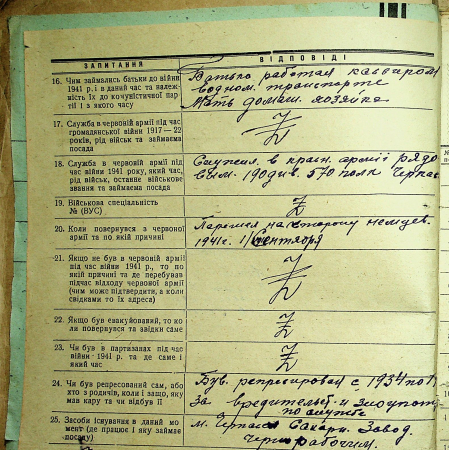 ЗАПИТАННЯ
ВІДПОВІДІ
16. Чим займались батьки до війни
1941 р. і в даний час та належ-
ність їх до комуністичної пар-
тії і з якого часу
Батько работал кассиром
водном. транспорте
Мать домаш. хозяйка
17. Служба в червоній армії під час
громадянської війни 1917—22
років, рід військ та займаєма
посада
Z
18. Служба в червоній армії під
час війни 1941 року, який час,
рід військ, останнє військове
звання та займаєма посада
Служил в красн. армії рядо
вым. 190 див. 570 полк
19. Військова спеціальність
№ (ВУС)
Z
20. Коли повернувся з червоної
армії та по якій причині
на сторону немцев.
1941 г. Сентября
21. Якщо не був в червоній армії
під час війни 1941 р., то по
якій причині та де перебував
підчас відходу червоної армії
(чим може підтвердити, а коли
свідками то їх адреса)
Z
22. Якщо був евакуйований, то ко-
ли повернувся та звідки саме
Z
23. Чи був в партизанах під час
війни 1941 р. та де саме і
який час
Z
24. Чи був репресирован сам, або
хто з родичів, коли і защо, яку
мав кару та чи відбув її
Був. репресирован с 1934 по
За вредительст. и злоупот
по службе
25. Засоби існування в даний мо-
мент (де працює і яку займає
посаду)
м. Черкаси Сахарн. Завод.
чернорабочим.
17.